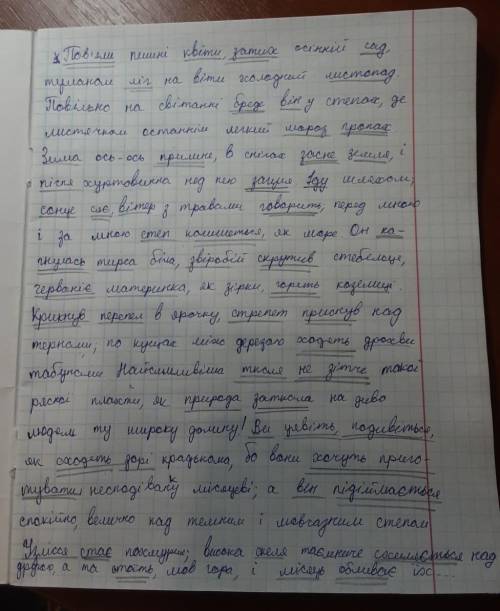 Пов'яли пишні квіти, затих осінній сад,
туманом ліг на віти холодний листопад.
Повільно на світанні бреде він у степах, де
листячком останнім легкий мороз пропах
Зима ось-ось прилине, в снігах засне земля, і
пісня хуртовинна над нею загуля Іду шляхом;
сонце сяє, вітер з травами говорить, перед мною
і за мною степ колишеться, як море Он на-
гнулась тирса біла, звіробій скрутив стебельце,
червоніє материнка, як зірки, горять козельці.
Крикнув перепел в ярочку, стрепет приснув над
тернами, по кущах між дерезою ходять дрохви
табунами Найсмиливіша ткаля не зітче такої
рясної плахти, як природа заткала на диво
людям ту широку долину! Ви уявіть, подиветься,
як сходять зорі крадькома, бо вони хочуть приго-
тувати несподіванку місяцеві; а він підіймається
спокійно, велично над темним і мовчазним степом
Узлісся стає похмурим; висока скеля таємниче
другою, а та стоїть, мов гора, і місяць обливає їх...